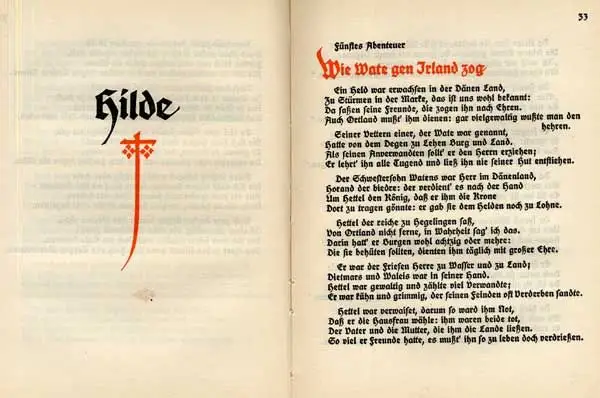 Hilde
33
Fünftes Abenteuer
Wie Wate gen Irland zog
Ein Held war erwachsen in der Dänen Land,
Zu Stürmen in der Marke, das ist uns wohl bekannt:
Da saßen seine Freunde, die zogen ihn nach Ehren.
Auch Ortland mußt' ihm dienen: gar vielgewaltig wußte man den
hehren.
Seiner Vettern einer, der Wate war genannt,
Hatte von dem Degen zu Lehen Burg und Land.
Als seinen Anverwandten sollt' er den Herrn erziehen;
Er lehrt' ihn alle Tugend und ließ ihn nie seiner Hut entfliehen.
Der Schwestersohn Watens war Herr im Dänenland,
Horand der biedre: der verdient' es nach der Hand
Um Hettel den König, daß er ihm die Krone
Dort zu tragen gönnte: er gab sie dem Helden noch zu Lohne.
Hettel der reiche zu Hegelingen saß,
Von Ortland nicht ferne, in Wahrheit sag' ich das.
Darin hatt' er Burgen wohl achtzig oder mehre:
Die sie behüten sollten, dienten ihm täglich mit großer Ehre.
Er war der Friesen Herre zu Wasser und zu Land;
Dietmars und Waleis war in seiner Hand.
Hettel war gewaltig und zählte viel Verwandte;
Er war kühn und grimmig, der seinen Feinden oft Verderben sandte.
Hettel war verwaiset, darum so ward ihm Not,
Daß er die Hausfrau wähle: ihm waren beide tot,
Der Vater und die Mutter, die ihm die Lande ließen.
So viel er Freunde hatte, es mußt' ihn so zu leben doch verdrießen.